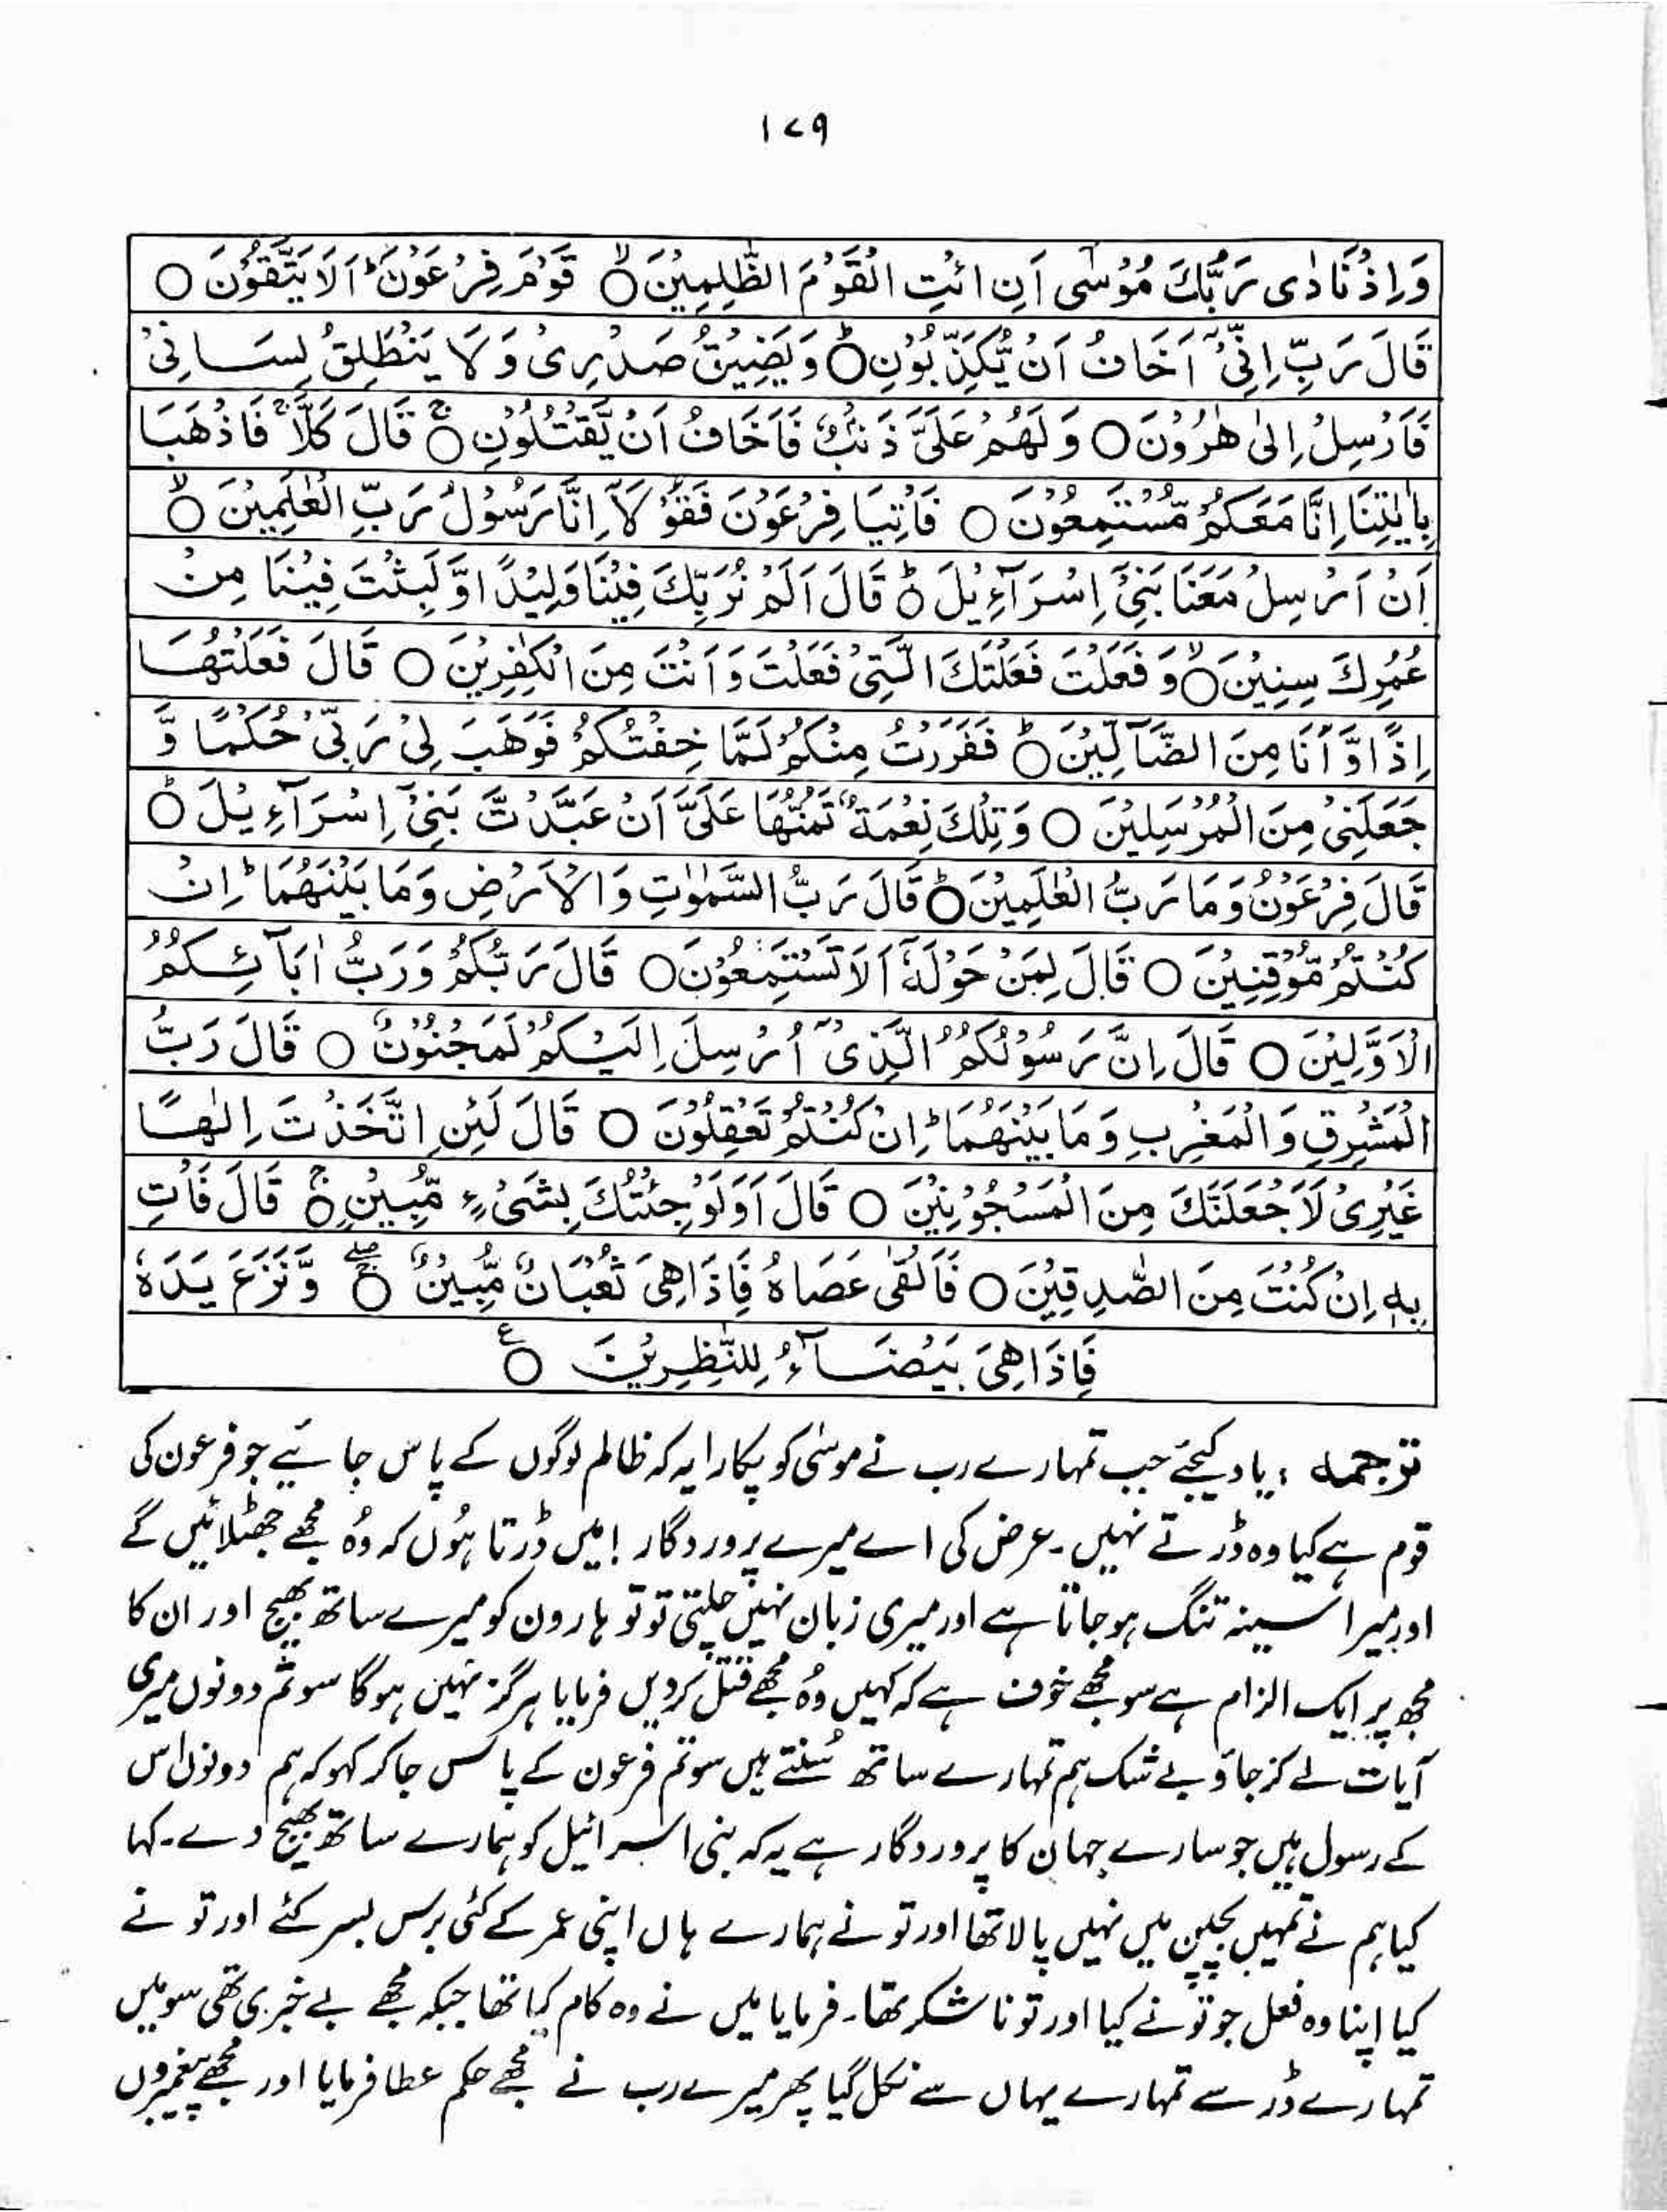 ۱۷۹
وَاِذْ نَادٰى رَبُّكَ مُوْسٰٓى اَنِ ائْتِ الْقَوْمَ الظّٰلِمِيْنَ ۙ○ قَوْمَ فِرْعَوْنَ ؕ اَلَا يَتَّقُوْنَ ○
قَالَ رَبِّ اِنِّيْٓ اَخَافُ اَنْ يُّكَذِّبُوْنِ ؕ○ وَيَضِيْقُ صَدْرِىْ وَلَا يَنْطَلِقُ لِسَانِىْ
فَاَرْسِلْ اِلٰى هٰرُوْنَ ○ وَلَهُمْ عَلَىَّ ذَنْۢبٌ فَاَخَافُ اَنْ يَّقْتُلُوْنِ ۚ○ قَالَ كَلَّا ۚ فَاذْهَبَا
بِاٰيٰتِنَا اِنَّا مَعَكُمْ مُّسْتَمِعُوْنَ ○ فَاْتِيَا فِرْعَوْنَ فَقُوْلَآ اِنَّا رَسُوْلُ رَبِّ الْعٰلَمِيْنَ ۙ○
اَنْ اَرْسِلْ مَعَنَا بَنِىْٓ اِسْرَآءِيْلَ ؕ○ قَالَ اَلَمْ نُرَبِّكَ فِيْنَا وَلِيْدًا وَّلَبِثْتَ فِيْنَا مِنْ
عُمُرِكَ سِنِيْنَ ۙ○ وَفَعَلْتَ فَعْلَتَكَ الَّتِىْ فَعَلْتَ وَاَنْتَ مِنَ الْكٰفِرِيْنَ ○ قَالَ فَعَلْتُهَا
اِذًا وَّاَنَا مِنَ الضَّآلِّيْنَ ؕ○ فَفَرَرْتُ مِنْكُمْ لَمَّا خِفْتُكُمْ فَوَهَبَ لِىْ رَبِّىْ حُكْمًا وَّ
جَعَلَنِىْ مِنَ الْمُرْسَلِيْنَ ○ وَتِلْكَ نِعْمَةٌ تَمُنُّهَا عَلَىَّ اَنْ عَبَّدْتَّ بَنِىْٓ اِسْرَآءِيْلَ ؕ○
قَالَ فِرْعَوْنُ وَمَا رَبُّ الْعٰلَمِيْنَ ؕ○ قَالَ رَبُّ السَّمٰوٰتِ وَالْاَرْضِ وَمَا بَيْنَهُمَا ؕ اِنْ
كُنْتُمْ مُّوْقِنِيْنَ ○ قَالَ لِمَنْ حَوْلَهٗٓ اَلَا تَسْتَمِعُوْنَ ○ قَالَ رَبُّكُمْ وَرَبُّ اٰبَآئِكُمُ
الْاَوَّلِيْنَ ○ قَالَ اِنَّ رَسُوْلَكُمُ الَّذِىْٓ اُرْسِلَ اِلَيْكُمْ لَمَجْنُوْنٌ ○ قَالَ رَبُّ
الْمَشْرِقِ وَالْمَغْرِبِ وَمَا بَيْنَهُمَا ؕ اِنْ كُنْتُمْ تَعْقِلُوْنَ ○ قَالَ لَئِنِ اتَّخَذْتَ اِلٰهًا
غَيْرِىْ لَاَجْعَلَنَّكَ مِنَ الْمَسْجُوْنِيْنَ ○ قَالَ اَوَلَوْ جِئْتُكَ بِشَىْءٍ مُّبِيْنٍ ۚ○ قَالَ فَاْتِ
بِهٖ اِنْ كُنْتَ مِنَ الصّٰدِقِيْنَ ○ فَاَلْقٰى عَصَاهُ فَاِذَا هِىَ ثُعْبَانٌ مُّبِيْنٌ ۚۖ○ وَّنَزَعَ يَدَهٗ
فَاِذَا هِىَ بَيْضَآءُ لِلنّٰظِرِيْنَ ○ع
ترجمہ : یاد کیجئے جب تمہارے رب نے موسٰی کو پکارا یہ کہ ظالم لوگوں کے پاس جائیے جو فرعون کی
قوم ہے کیا وہ ڈرتے نہیں۔ عرض کی اے میرے پروردگار! میں ڈرتا ہُوں کہ وُہ مجھے جھٹلائیں گے
اور میرا سینہ تنگ ہو جاتا ہے اور میری زبان نہیں چلتی تو تو ہارون کو میرے ساتھ بھیج اور ان کا
مجھ پر ایک الزام ہے سو مجھے خوف ہے کہ کہیں وُہ مجھے قتل کر دیں فرمایا ہرگز نہیں ہوگا سو تم دونوں میری
آیات لے کر جاؤ بے شک ہم تمہارے ساتھ سُنتے ہیں سو تم فرعون کے پاس جا کر کہو کہ ہم دونوں اس
کے رسول ہیں جو سارے جہان کا پروردگار ہے یہ کہ بنی اسرائیل کو ہمارے ساتھ بھیج دے۔ کہا
کیا ہم نے تمہیں بچپن میں نہیں پالا تھا اور تو نے ہمارے ہاں اپنی عمر کے کئی برس بسر کئے اور تو نے
کیا اپنا وہ فعل جو تو نے کیا اور تو ناشکر تھا۔ فرمایا میں نے وہ کام کیا تھا جبکہ مجھے بے خبری تھی سو میں
تمہارے ڈر سے تمہارے یہاں سے نکل گیا پھر میرے رب نے مجھے حکم عطا فرمایا اور مجھے پیغمبروں